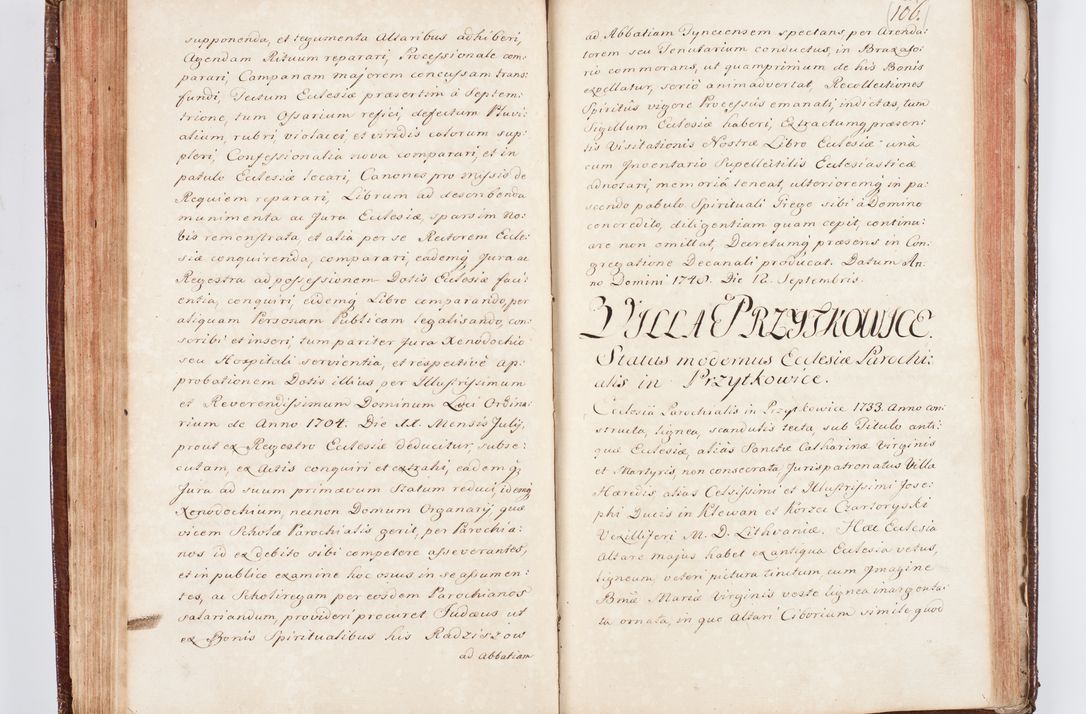 supponenda, et tegumenta Altaribus adhiberi,
Agendam Rituum reparari, Processionale com:
parari, Campanam majorem concussam trans:
fundi, Tectum Ecclesiæ præsertim à Septem:
trione, tum Ossarium refici, defectum Pluvi:
alium, rubri, violacei et viridis colorum sup:
pleri, Confessionalia nova comparari, et in
patulo Ecclesiæ locari, Canones pro Missis de
Requiem reparari, Librum ad describenda
munimenta ac Jura Ecclesiæ, sparsim No:
bis remonstrata, et alia per se Rectorem Eccle:
siæ conquirenda, comparari, eademq Jura ac
Regestra ad possessionem Dotis Ecclesiæ faci:
entia, conquiri eidemq Libro comparando, per
aliquam Personam Publicam legalisando, con:
scribi et inseri, tum pariter Jura Xenodochio
seu Hospitali servientia, et respectivè ap:
probationem Dotis illius, per Illustrissimum
et Reverendissimum Dominum Loci Ordina:
rium de Anno 1704. Die IX. Mensis Julij,
prout ex Regestro Ecclesiæ deducitur, subse:
cutam, ex Actis conquiri et extrahi, eademq
Jura ad suum primævum Statum reduci, idemq
Xenodochium, necnon Domum Organarij, quæ
vicem Scholæ Parochialis gerit, per Parochia:
nos id ex debito sibi competere asseverantes,
et in publico examine hoc onus in se assumen:
tes, ac Scholiregam per eosdem Parochianos
salariandum, provideri procuret. Judæus ut
ex Bonis Spiritualibus his Radziszow
ad Abbatiam
106.
ad Abbatiam Tyneciensem spectans, per Arenda:
torem seu Tenutarium conductus, in Braxato:
rio commorans, ut quamprimum de his Bonis
expellatur, seriò animadvertat, Recollectiones
Spiritûs vigore Processûs emanati, indictas, tum
Sigillum Ecclesiæ haberi, Extractumq præsen:
tis Visitationis Nostræ Libro Ecclesiæ unà
cum Inventario Supellectilis Ecclesiasticæ
adnotari, memoriâ teneat, ulterioremq in pa:
scendo pabulo Spirituali Grege sibi à Domino
concredito, diligentiam quam cepit, continu:
are non omittat, Decretumq præsens in Con:
gregatione Decanali producat. Datum An:
no Domini 1748. Die 12. Septembris.
VILLA PRZYTKOWICE.
Status modernus Ecclesiæ Parochi:
alis in Przytkowice.
Ecclesia Parochialis in Przytkowice 1733. Anno con:
structa, lignea, scandulis tecta sub Titulo anti:
quæ Ecclesiæ, alias Sanctæ Catharinæ Virginis
et Martyris non consecrata, Jurispatronatus Villæ
Hæredis, alias Celsissimi et Illustrissimi Jose:
phi Ducis in Klewan et Korzec Czartoryski
Vexilliferi M. D. Lithvaniæ. Hæc Ecclesia
Altare majus habet ex antiqua Ecclesia vetus,
ligneum, veteri pictura tinctum, cum Imagine
Bmæ Mariæ Virginis veste lignea inargenta:
ta ornata, in quo Altari Ciborium simile quod